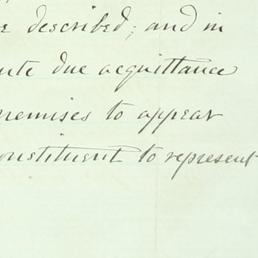 described; and in
due acquittance
premises to appear
constituent to represent